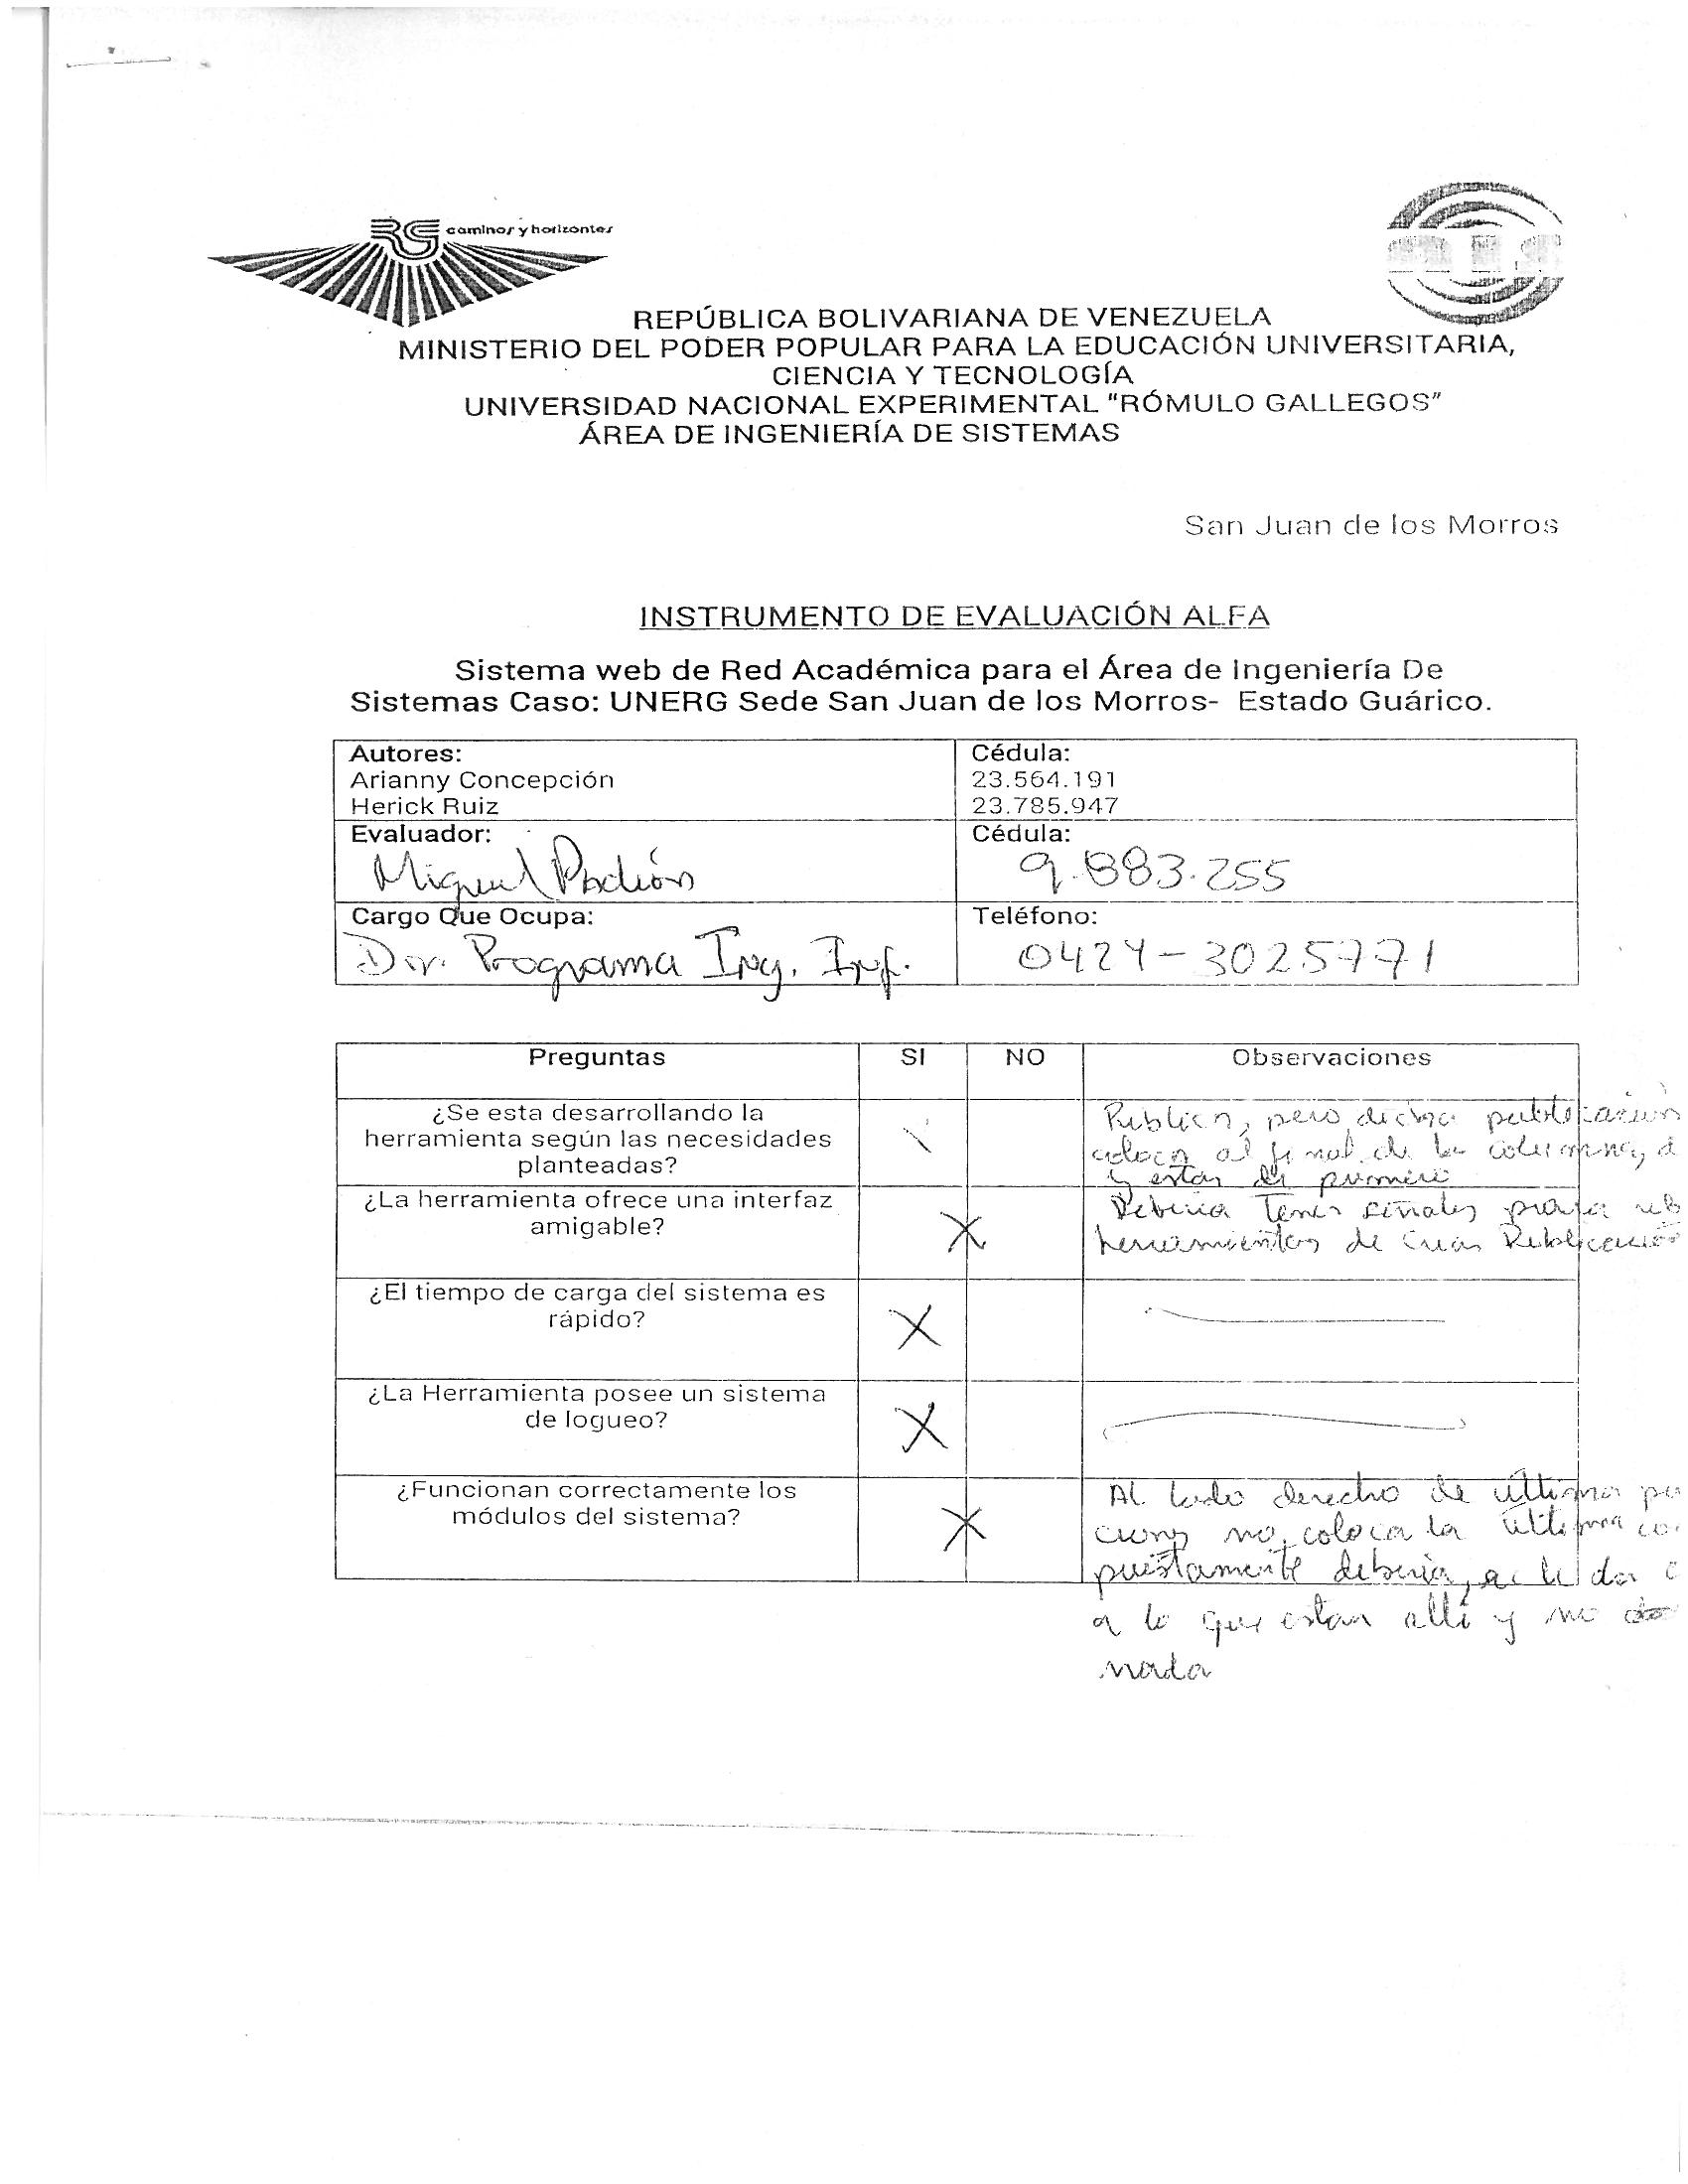 RG caminos y horizontes
REPÚBLICA BOLIVARIANA DE VENEZUELA
MINISTERIO DEL PODER POPULAR PARA LA EDUCACIÓN UNIVERSITARIA,
CIENCIA Y TECNOLOGÍA
UNIVERSIDAD NACIONAL EXPERIMENTAL "RÓMULO GALLEGOS"
ÁREA DE INGENIERÍA DE SISTEMAS
San Juan de los Morros
INSTRUMENTO DE EVALUACIÓN ALFA
Sistema web de Red Académica para el Área de Ingeniería De
Sistemas Caso: UNERG Sede San Juan de los Morros- Estado Guárico.
Autores:
Arianny Concepción
Herick Ruiz
Cédula:
23.564.191
23.785.947
Evaluador:
Miguel
Cédula:
9.883.255
Cargo Que Ocupa:
Dir. Programa Ing. Inf.
Teléfono:
0424-3025771
Preguntas SI NO Observaciones
¿Se esta desarrollando la
herramienta según las necesidades
planteadas?
pero dicha publicación
coloca al final de la columna,
y estar de primero
¿La herramienta ofrece una interfaz
amigable?
X
Debería tener señales para
herramientas de Crear Publicación
¿El tiempo de carga del sistema es
rápido?
X
¿La Herramienta posee un sistema
de logueo?
X
¿Funcionan correctamente los
módulos del sistema?
X
Al lado derecho de última
no coloca la última
puestamente debería, se le da
a lo que estan allí y no
nada